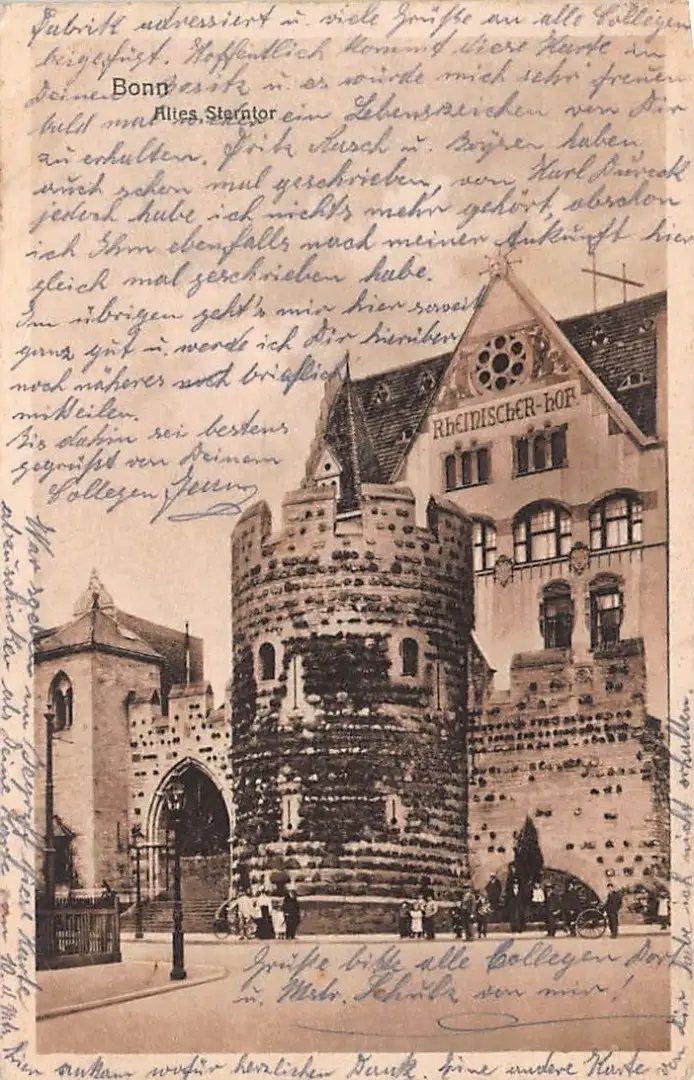 Fabrik adressiert u. viele Grüße an alle Collegen
beigefügt. Hoffentlich kommt diese Karte in
Deinen Besitz u. es würde mich sehr freuen
bald mal wieder ein Lebenszeichen von Dir
zu erhalten. Fritz Rasch u. Boysen haben
auch schon mal geschrieben, von Karl Dureck
jedoch habe ich nichts mehr gehört, obschon
ich Ihm ebenfalls nach meiner Ankunft hier
gleich mal geschrieben habe.
Im übrigen geht's mir hier soweit
ganz gut u. werde ich Dir hierüber
noch näheres noch brieflich
mitteilen.
Bis dahin sei bestens
gegrüßt von Deinem
Collegen
Bonn
Altes Sterntor
RHEINISCHER-HOF
Grüße bitte alle Collegen Dort
u. Mstr. Schulz von mir!
War soeben im Begriff diese Karte
abzuschicken als Deine Karte vom 10. d. Mts.
hier ankam wofür herzlichen Dank. Eine andere Karte von
Dir habe ich nicht erhalten